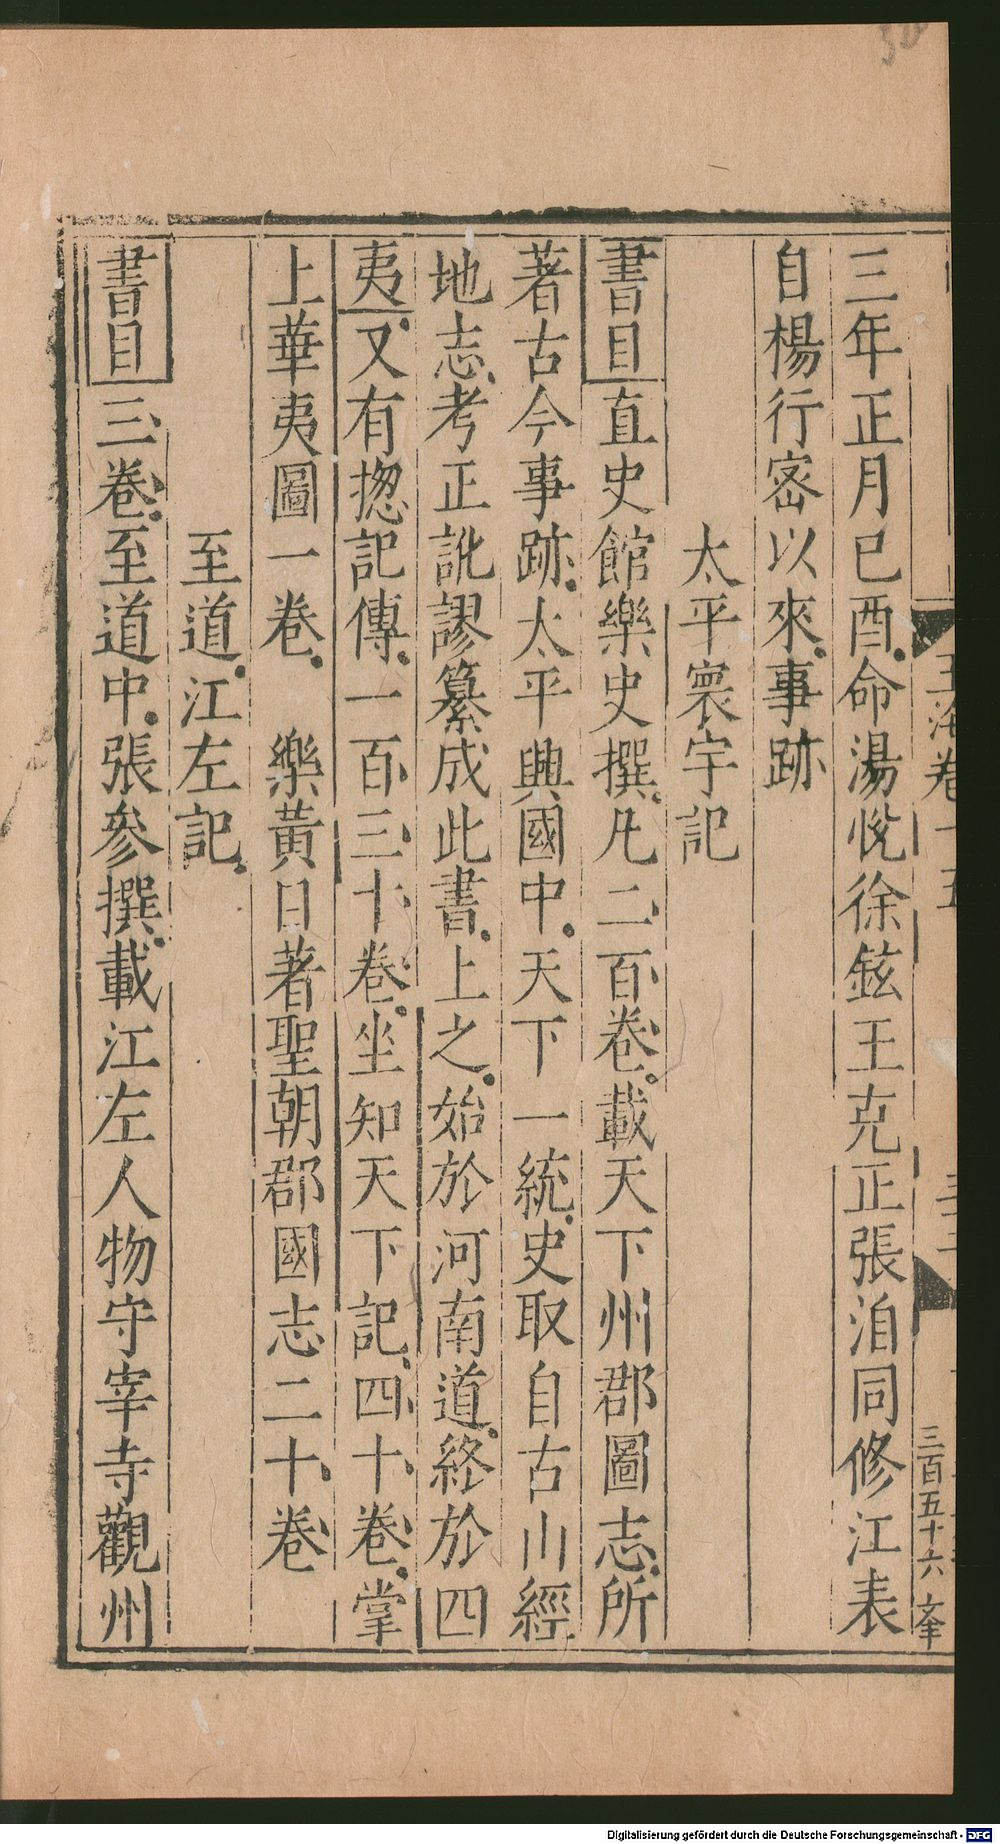 三年正月已酉命湯悅徐鉉王克正張洎同修江表
自楊行密以來事跡
太平寰宇記
書目直史館樂史撰凡二百卷載天下州郡圖志所
著古今事跡太平興國中天下一統史取自古山經
地志考正訛謬纂成此書上之始於河南道終於四
夷又有揔記傳一百三十卷坐知天下記四十卷掌
上華夷圖一卷　樂黃目著聖朝郡國志二十卷
至道江左記
書目三卷至道中張參撰載江左人物守宰寺觀州
三百五十六
Digitalisierung gefördert durch die Deutsche Forschungsgemeinschaft - DFG